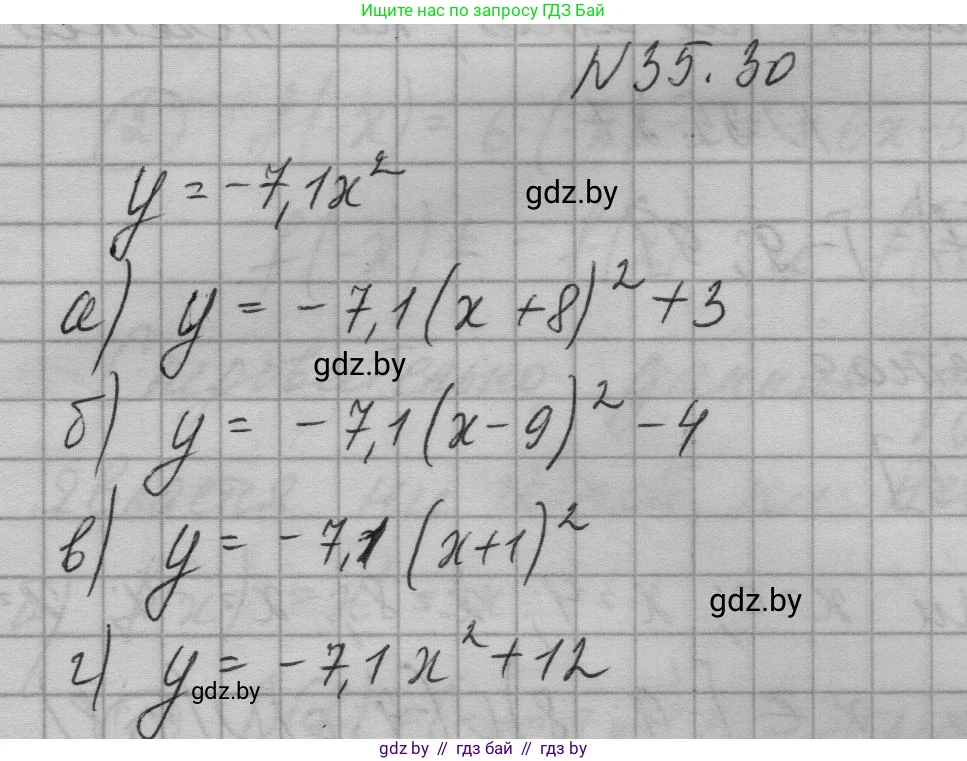 Ищите нас по запросу ГДЗ Бай
N 35.30
y = -7,1x²
gdz.by
а) y = -7,1(x+8)² + 3
gdz.by
б) y = -7,1(x-9)² - 4
в) y = -7,1(x+1)²
gdz.by
г) y = -7,1x² + 12
gdz.by
gdz by // гдз бай // гдз by